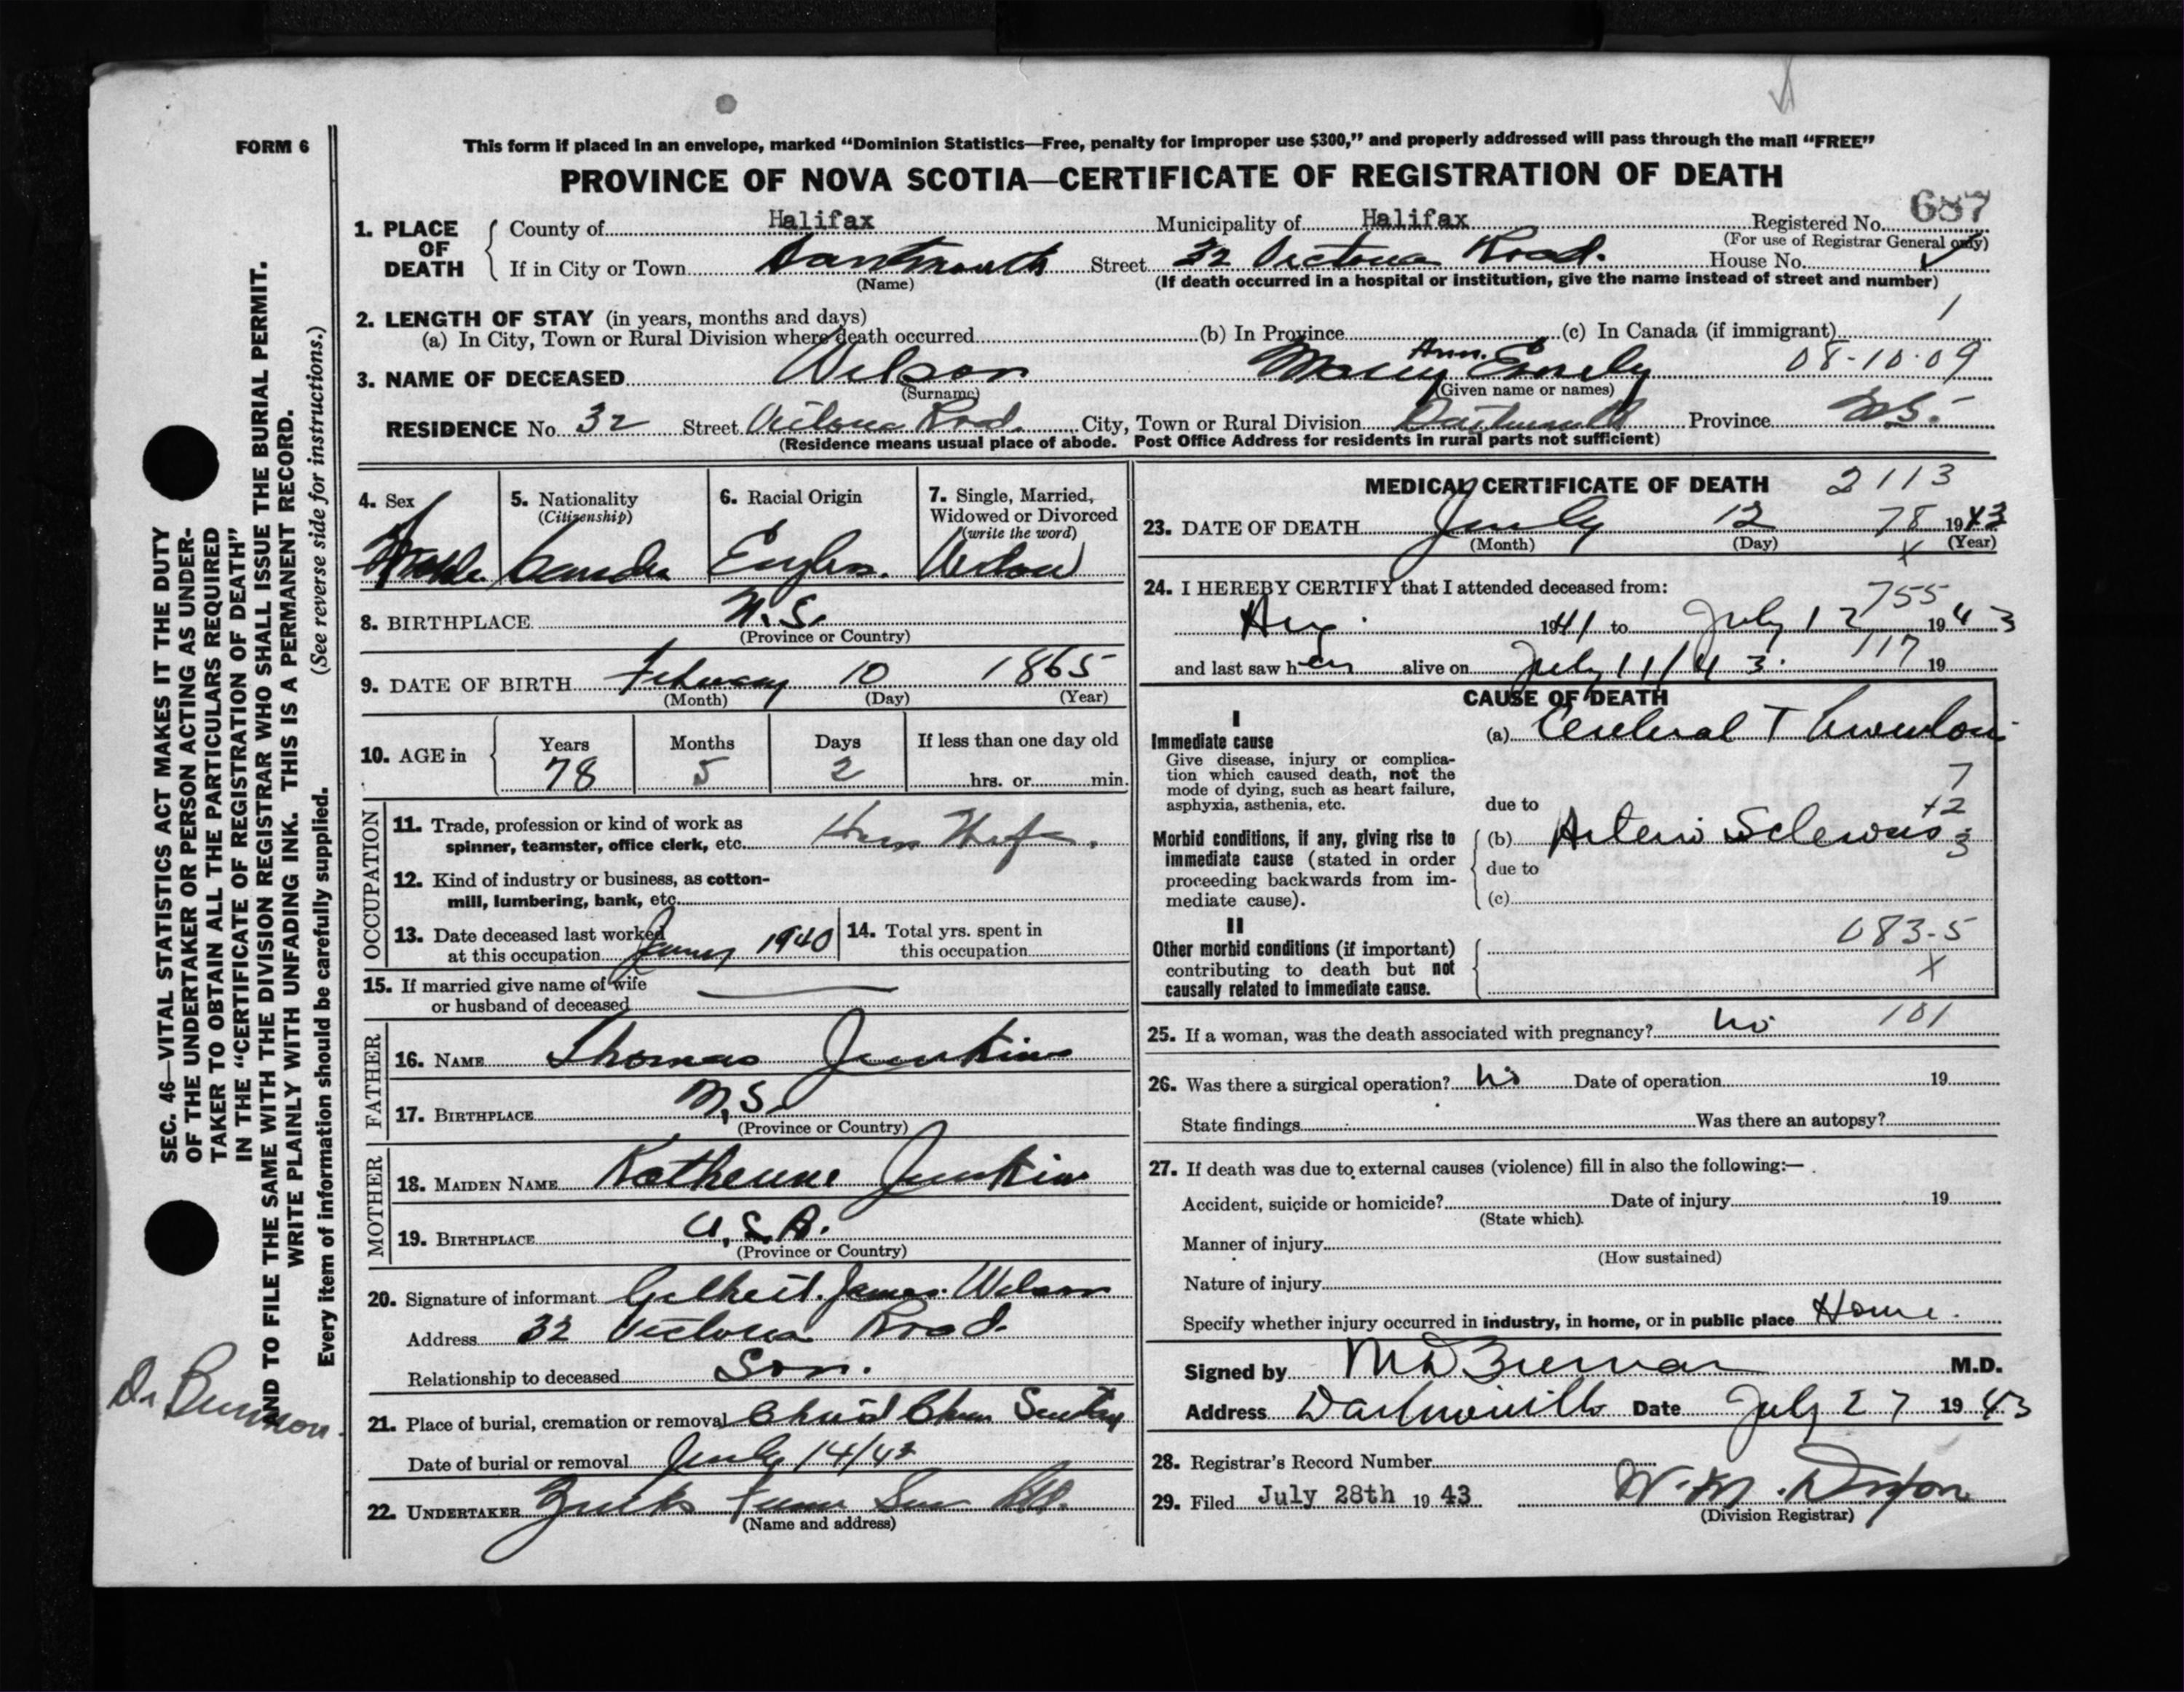 FORM 6
This form if placed in an envelope, marked “Dominion Statistics—Free, penalty for improper use $300,” and properly addressed will pass through the mail “FREE”
PROVINCE OF NOVA SCOTIA—CERTIFICATE OF REGISTRATION OF DEATH
1. PLACE OF DEATH
County of Halifax Municipality of Halifax Registered No. 687
(For use of Registrar General only)
If in City or Town Dartmouth Street 32 Victoria Road. House No.
(Name) (If death occurred in a hospital or institution, give the name instead of street and number)
2. LENGTH OF STAY (in years, months and days)
(a) In City, Town or Rural Division where death occurred (b) In Province (c) In Canada (if immigrant) 1
3. NAME OF DECEASED Wilson Mary Ann Emily 08-10-09
(Surname) (Given name or names)
RESIDENCE No. 32 Street Victoria Road. City, Town or Rural Division Dartmouth Province N.S.
(Residence means usual place of abode. Post Office Address for residents in rural parts not sufficient)
4. Sex
Female
5. Nationality
(Citizenship)
6. Racial Origin
7. Single, Married,
Widowed or Divorced
(write the word)
Widow
8. BIRTHPLACE N.S.
(Province or Country)
9. DATE OF BIRTH February 10 1865
(Month) (Day) (Year)
10. AGE in Years Months Days If less than one day old
78 5 2 hrs. or min.
OCCUPATION
11. Trade, profession or kind of work as
spinner, teamster, office clerk, etc.
12. Kind of industry or business, as cotton-
mill, lumbering, bank, etc.
13. Date deceased last worked
at this occupation 1940
14. Total yrs. spent in
this occupation
15. If married give name of wife
or husband of deceased
FATHER
16. NAME Thomas Junkin
17. BIRTHPLACE N.S.
(Province or Country)
MOTHER
18. MAIDEN NAME Katherine Junkin
19. BIRTHPLACE U.S.A.
(Province or Country)
20. Signature of informant Gilbert James Wilson
Address 32 Victoria Road.
Relationship to deceased Son.
21. Place of burial, cremation or removal
Date of burial or removal July 14/43
22. UNDERTAKER
(Name and address)
MEDICAL CERTIFICATE OF DEATH 2113
23. DATE OF DEATH July 12 78 1943
(Month) (Day) X (Year)
24. I HEREBY CERTIFY that I attended deceased from:
755
Aug. 1941 to July 12 1943
and last saw her alive on July 11/43. 117 19
CAUSE OF DEATH
I
Immediate cause
Give disease, injury or complica-
tion which caused death, not the
mode of dying, such as heart failure,
asphyxia, asthenia, etc.
(a) Cerebral Thrombosis
7
due to +2
Morbid conditions, if any, giving rise to
immediate cause (stated in order
proceeding backwards from im-
mediate cause).
(b) Arterio Sclerosis 3
due to
(c)
II
Other morbid conditions (if important)
contributing to death but not
causally related to immediate cause.
083-5
X
25. If a woman, was the death associated with pregnancy? no 101
26. Was there a surgical operation? no Date of operation 19
State findings Was there an autopsy?
27. If death was due to external causes (violence) fill in also the following:—
Accident, suicide or homicide? Date of injury 19
(State which).
Manner of injury
(How sustained)
Nature of injury
Specify whether injury occurred in industry, in home, or in public place Home.
Signed by M.D.
Address Dartmouth Date July 27 1943
28. Registrar's Record Number
29. Filed July 28th 1943
(Division Registrar)
SEC. 46—VITAL STATISTICS ACT MAKES IT THE DUTY
OF THE UNDERTAKER OR PERSON ACTING AS UNDER-
TAKER TO OBTAIN ALL THE PARTICULARS REQUIRED
IN THE “CERTIFICATE OF REGISTRATION OF DEATH”
AND TO FILE THE SAME WITH THE DIVISION REGISTRAR WHO SHALL ISSUE THE BURIAL PERMIT.
WRITE PLAINLY WITH UNFADING INK. THIS IS A PERMANENT RECORD.
Every item of information should be carefully supplied. (See reverse side for instructions.)